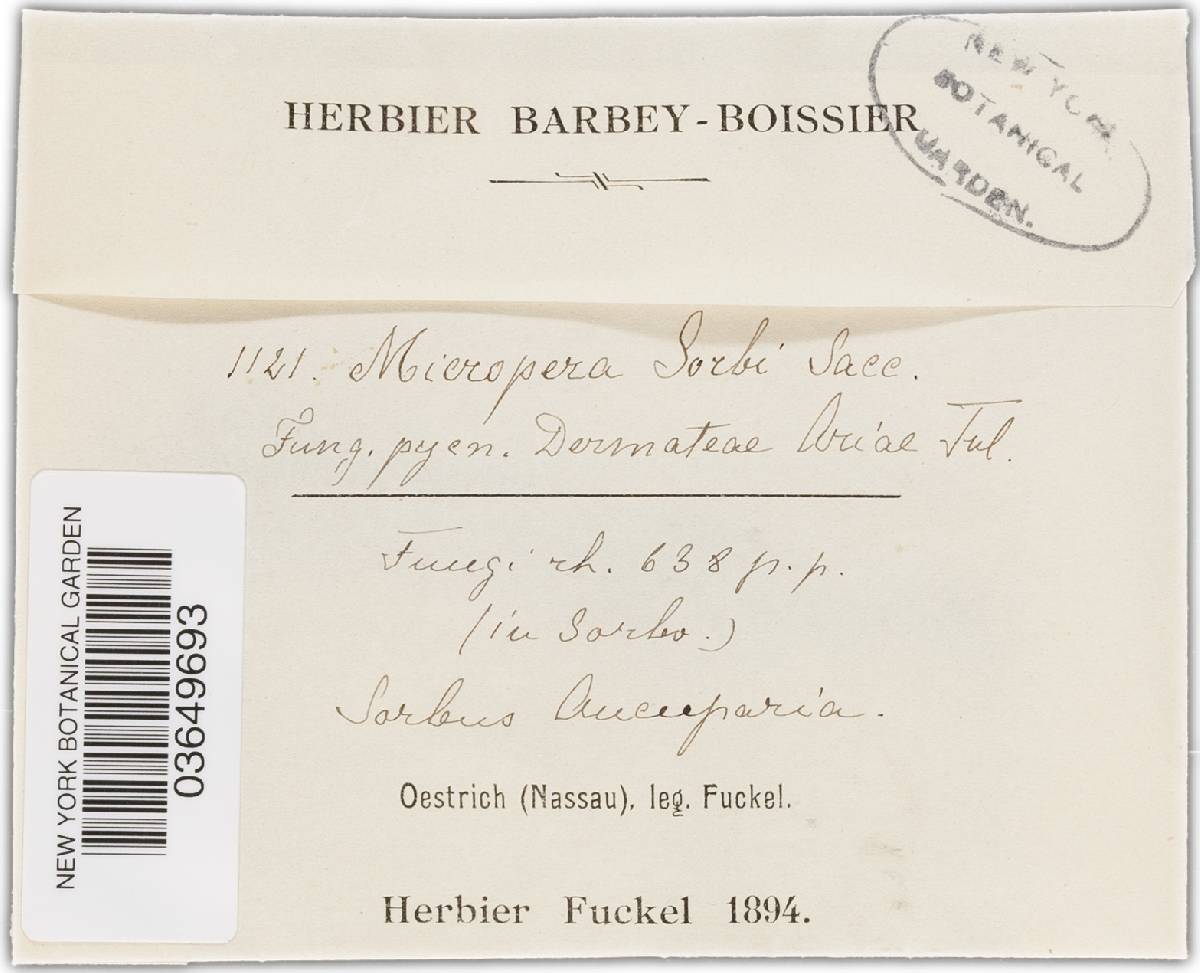 HERBIER BARBEY-BOISSIER
NEW YORK
BOTANICAL
GARDEN.
1121. Micropera Sorbi Sacc.
Fung. pycn. Dermateae Ariae Tul.
Fungi rh. 638 p. p.
(in Sorbo.)
Sorbus Aucuparia.
Oestrich (Nassau), leg. Fuckel.
Herbier Fuckel 1894.
NEW YORK BOTANICAL GARDEN
03649693